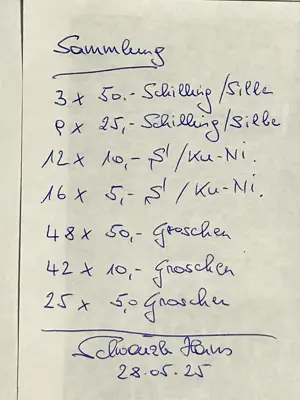 Sammlung
3 x 50.- Schilling/Silber
9 x 25,- Schilling/Silber
12 x 10,- S' / Ku-Ni.
16 x 5,- S' / Ku-Ni.
48 x 50,- Groschen
42 x 10,- Groschen
25 x 5,0 Groschen
Hans
28.05.25